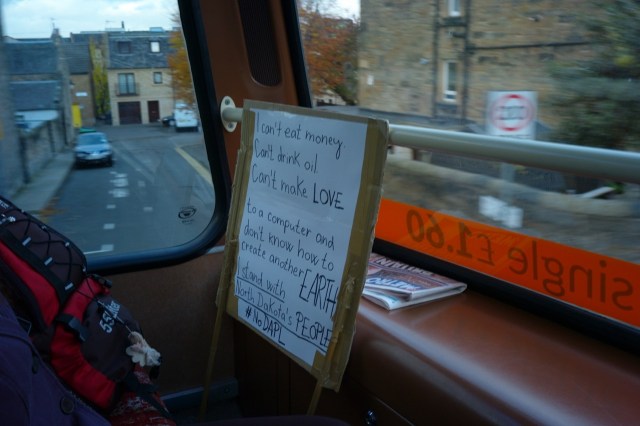 I can't eat money.
Can't drink oil.
Can't make LOVE
to a computer and
don't know how to
create another EARTH
I stand with
North Dakota's PEOPLE
# NO DAPL
single £1.60
55